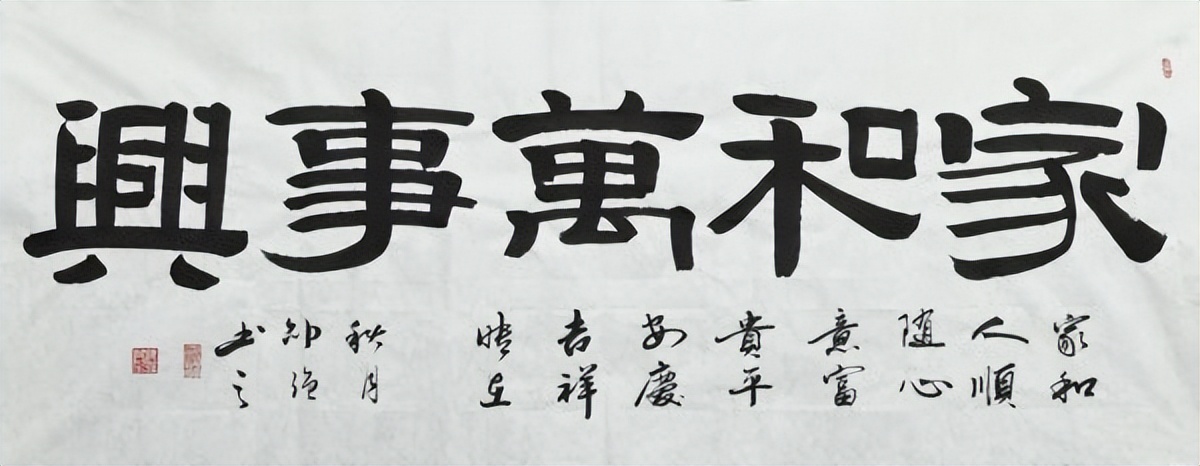 家和萬事興
家和
人順
随心
意富
貴平
安慶
吉祥
時在
秋月
书之